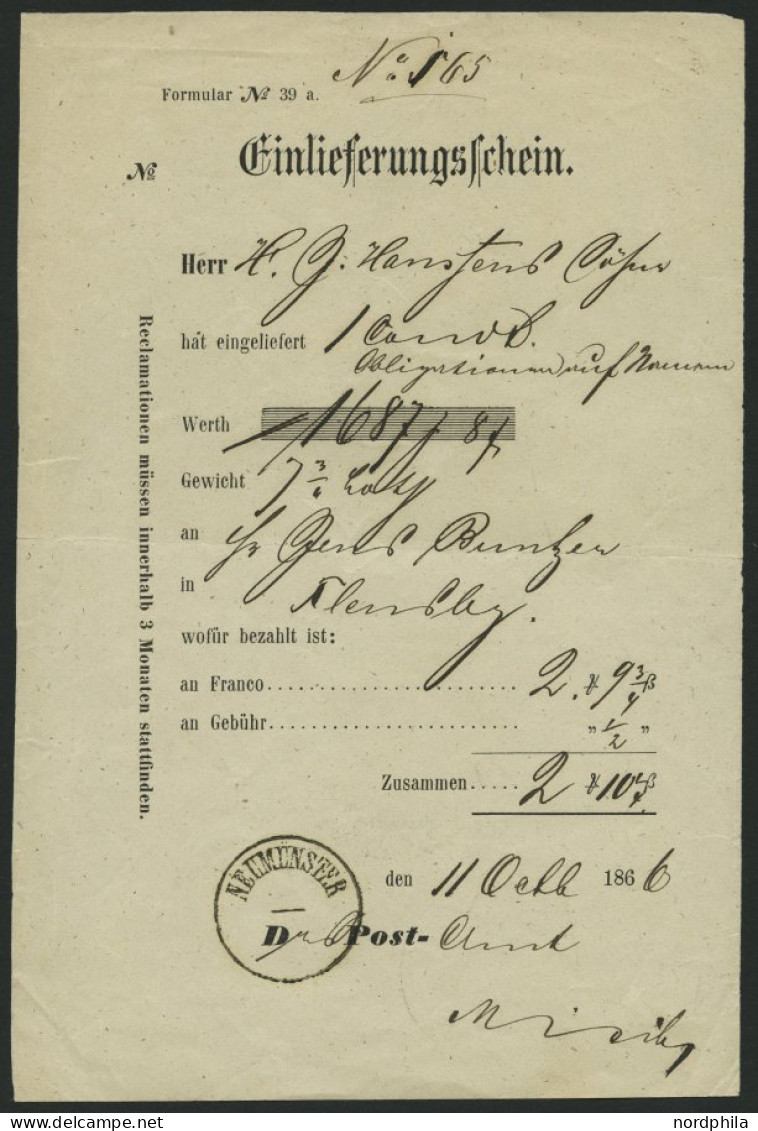 No 165
Formular No 39 a.
No Einlieferungsschein.
Herr H. G. Hanssens Söhne
hat eingeliefert 1 Couvt.
Obligationen auf Namen
Werth 1687 87
Gewicht 7 3/4 Loth
an Hr Jens Buntzen
in Flensbg.
wofür bezahlt ist:
an Franco 2 ₰ 9 3/4 ß
an Gebühr „ 1/2 „
Zusammen 2 10 1/4 ß
Reclamationen müssen innerhalb 3 Monaten stattfinden.
NEUMÜNSTER
den 11 Octb 1866
Das Post-Amt
nordphila